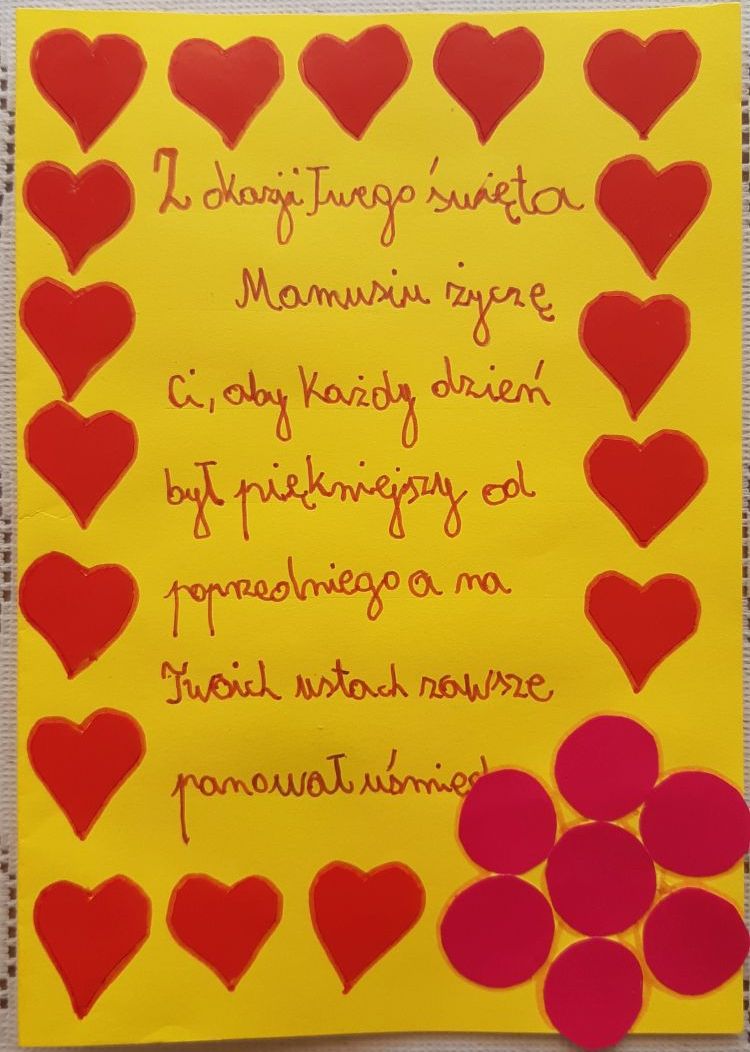 Z okazji Twego święta
Mamusiu życzę
Ci, aby każdy dzień
był piękniejszy od
poprzedniego a na
Twoich ustach zawsze
panował